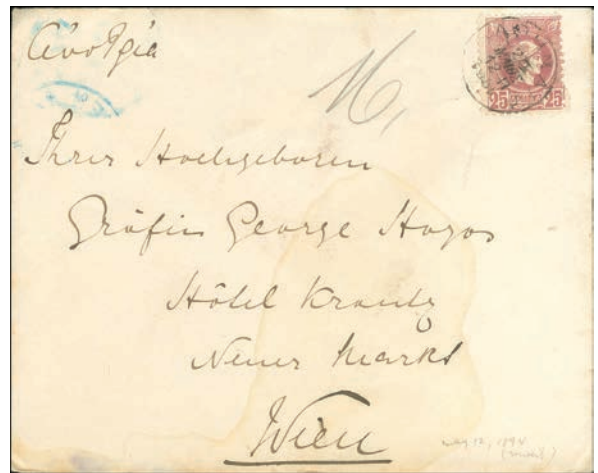 Αυστρία
25 25
16,
Ihrer Hochgeboren
Gräfin George Hoyos
Hôtel Krantz
Neuer Markt
Wien
May 12, 1894